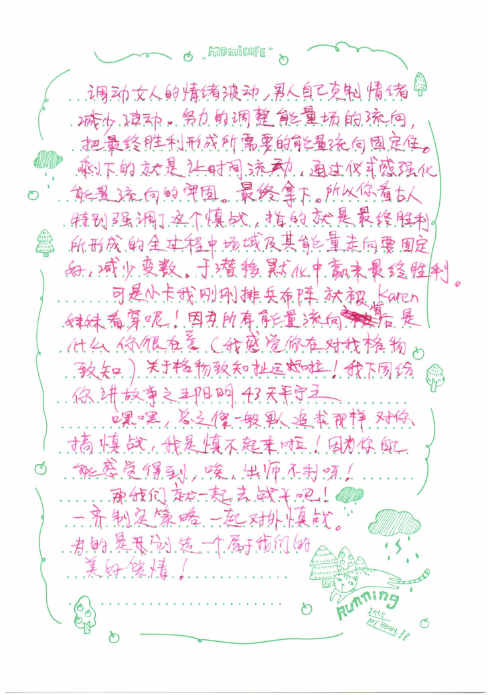 momicafe
调动女人的情绪波动,男人自己克制情绪
减少波动。努力的调整能量场的流向,
把最终胜利形成所需要的能量流向固定住。
剩下的就是让时间流动,通过仪式感强化
能量流向的牢固。最终拿下。所以你看古人
特别强调了这个慎战,指的就是最终胜利
所形成的全过程中场域及其能量走向要固定
好,减少变数。于潜移默化中赢来最终胜利。
可是小卡我刚刚排兵布阵就被 Karen
妹妹看穿呢!因为所有能量流向 背后是
什么你很在意(我感觉你在对我格物
致知)关于格物致知扯远啦!我下周给
你讲故事之王阳明43天平宁王
嘿嘿,总之像一般男人追求那样对你
搞慎战,我是慎不起来啦!因为你自己
能感觉得到,唉,出师不利呀!
那我们就一起去战斗吧!
一齐制定策略一起对外慎战。
为的是开创造一个属于我们的
美好爱情!
Running
Into
My Heart!!